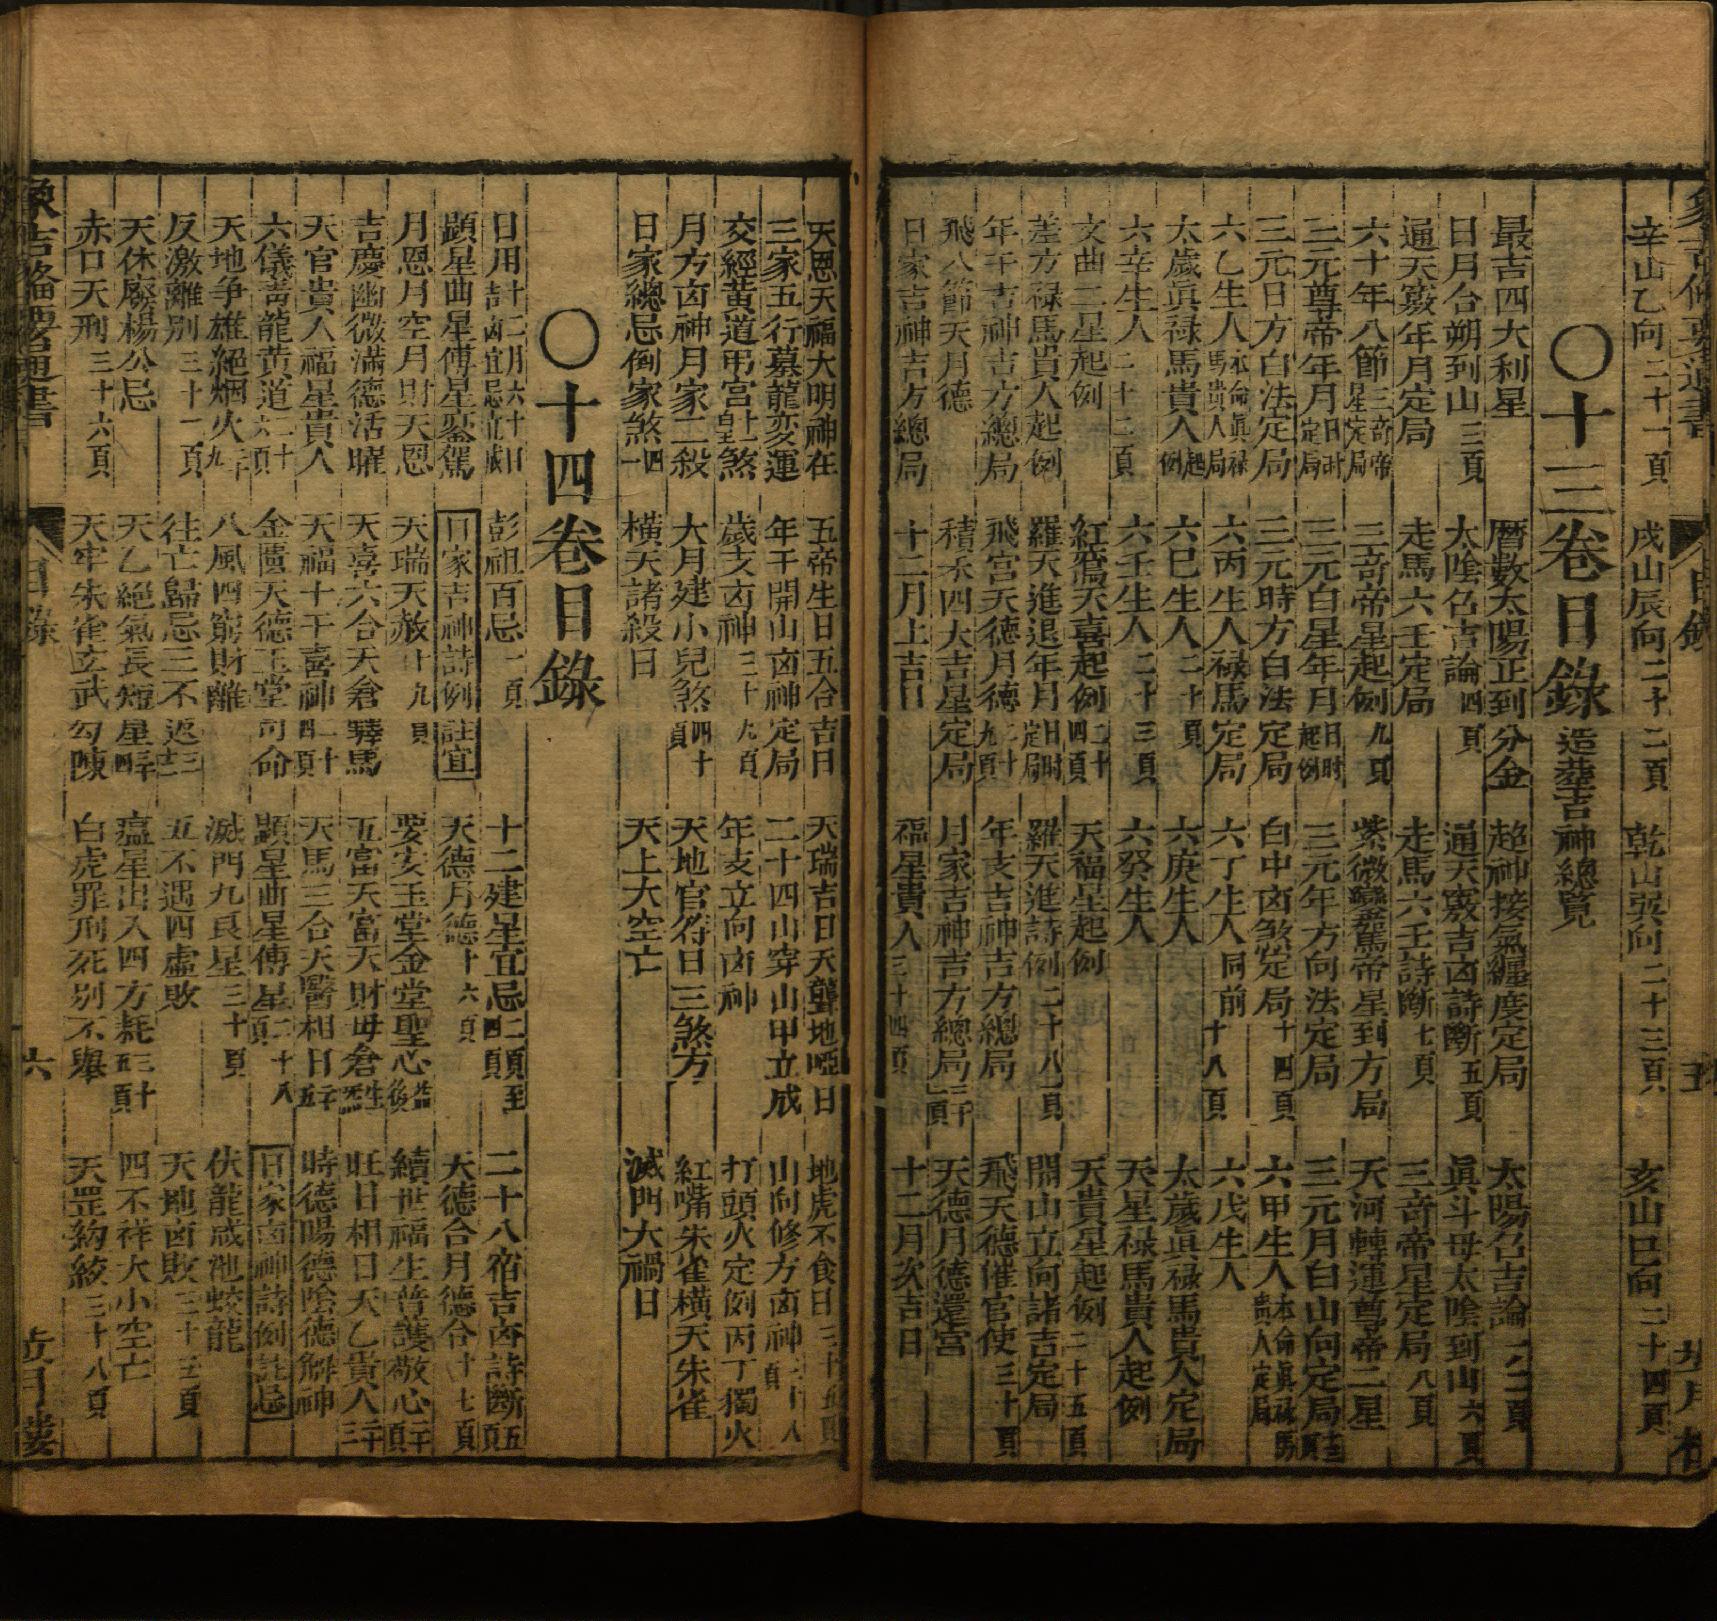 辛山乙向二十一頁 戌山辰向二十二頁 乾山巽向二十三頁 亥山巳向二十四頁
〇十三卷目錄 造葬吉神總覽
最吉四大利星 曆數太陽正到分金 超神接氣纏度定局 太陽召吉論一二頁
日月合朔到山三頁 太陰召吉論四頁 通天竅吉凶詩斷五頁 眞斗母太陰到山六頁
通天竅年月定局 走馬六壬定局 走馬六壬詩斷七頁 三奇帝星定局八頁
六十年八節三奇帝星定局 三奇帝星起例九頁 紫微鑾駕帝星到方局 天河轉運尊帝二星
三元尊帝年月日时定局 三元白星年月日时起例 三元年方向法定局 三元月白山向定局
三元日方白法定局 三元時方白法定局 白中凶煞定局十四頁 六甲生人本命眞祿馬貴人定局
六乙生人本命眞祿馬貴人局 六丙生人祿馬定局 六丁生人同前十八頁 六戊生人
太歲眞祿馬貴人起例 六巳生人二十頁 六庚生人 太歲眞祿馬貴人定局
六辛生人二十二頁 六壬生人二十三頁 六癸生人 天星祿馬貴人起例
文曲二星起例 紅鸞天喜起例二十四頁 天福星起例 天貴星起例二十五頁
差方祿馬貴人起例 羅天進退年月日时定局 羅天進詩例二十八頁 開山立向諸吉定局
年干吉神吉方總局 飛宮天德月德二十九頁 年支吉神吉方總局 飛天德催官使三十頁
飛八節天月德 積水四大吉星定局 月家吉神吉方總局 天德月德還宮
日家吉神吉方總局 十二月上吉日 福星貴人三十四頁 十二月次吉日
天恩天福大明神在 五帝生日五合吉日 天瑞吉日天聾地啞日 地虎不食日三十五頁
三家五行墓龍変運 年干開山凶神定局 二十四山穿山甲立成 山向修方凶神三十八頁
交經黄道弔宮尅煞 歲支凶神三十九頁 年支立向凶神 打頭火定例丙丁獨火
月方凶神月家二殺 大月建小兒煞四十頁 天地官符日三煞方 紅嘴朱雀橫天朱雀
日家總忌倒家煞 橫天諸殺日 天上大空亡 滅門大禍日
〇十四卷目錄
日用十二月六十日吉凶宜忌 彭祖百忌一頁 十二建星宜忌二頁至四頁 二十八宿吉凶詩斷五頁
顯星曲星傅星鑾駕 日家吉神詩例註宜 天德月德十六頁 天德合月德合十七頁
月恩月空月財天恩 天瑞天赦十九頁 要安玉堂金堂聖心益後 續世福生普護敬心
吉慶幽微滿德活曜 天喜六合天倉驛馬 五富天富天財母倉 旺日相日天乙貴人
天官貴人福星貴人 天福十干喜神 天馬三台天醫相日 時德陽德陰德解神
六儀青龍黄道 金匱天德玉堂司命 顯星曲星傅星二十八頁 日家凶神詩例註忌
天地爭雄絕烟火 八風四窮財離 滅門九良星三十頁 伏龍咸池蛟龍
反激離別三十一頁 往亡歸忌三不返 五不遇四虛敗 天地凶敗三十三頁
天休廢楊公忌 天乙絕氣長短星 瘟星出入四方耗三十五頁 四不祥大小空亡
赤口天刑三十六頁 天牢朱雀玄武勾陳 白虎罪刑死别不舉 天罡約絞三十八頁
目錄 六